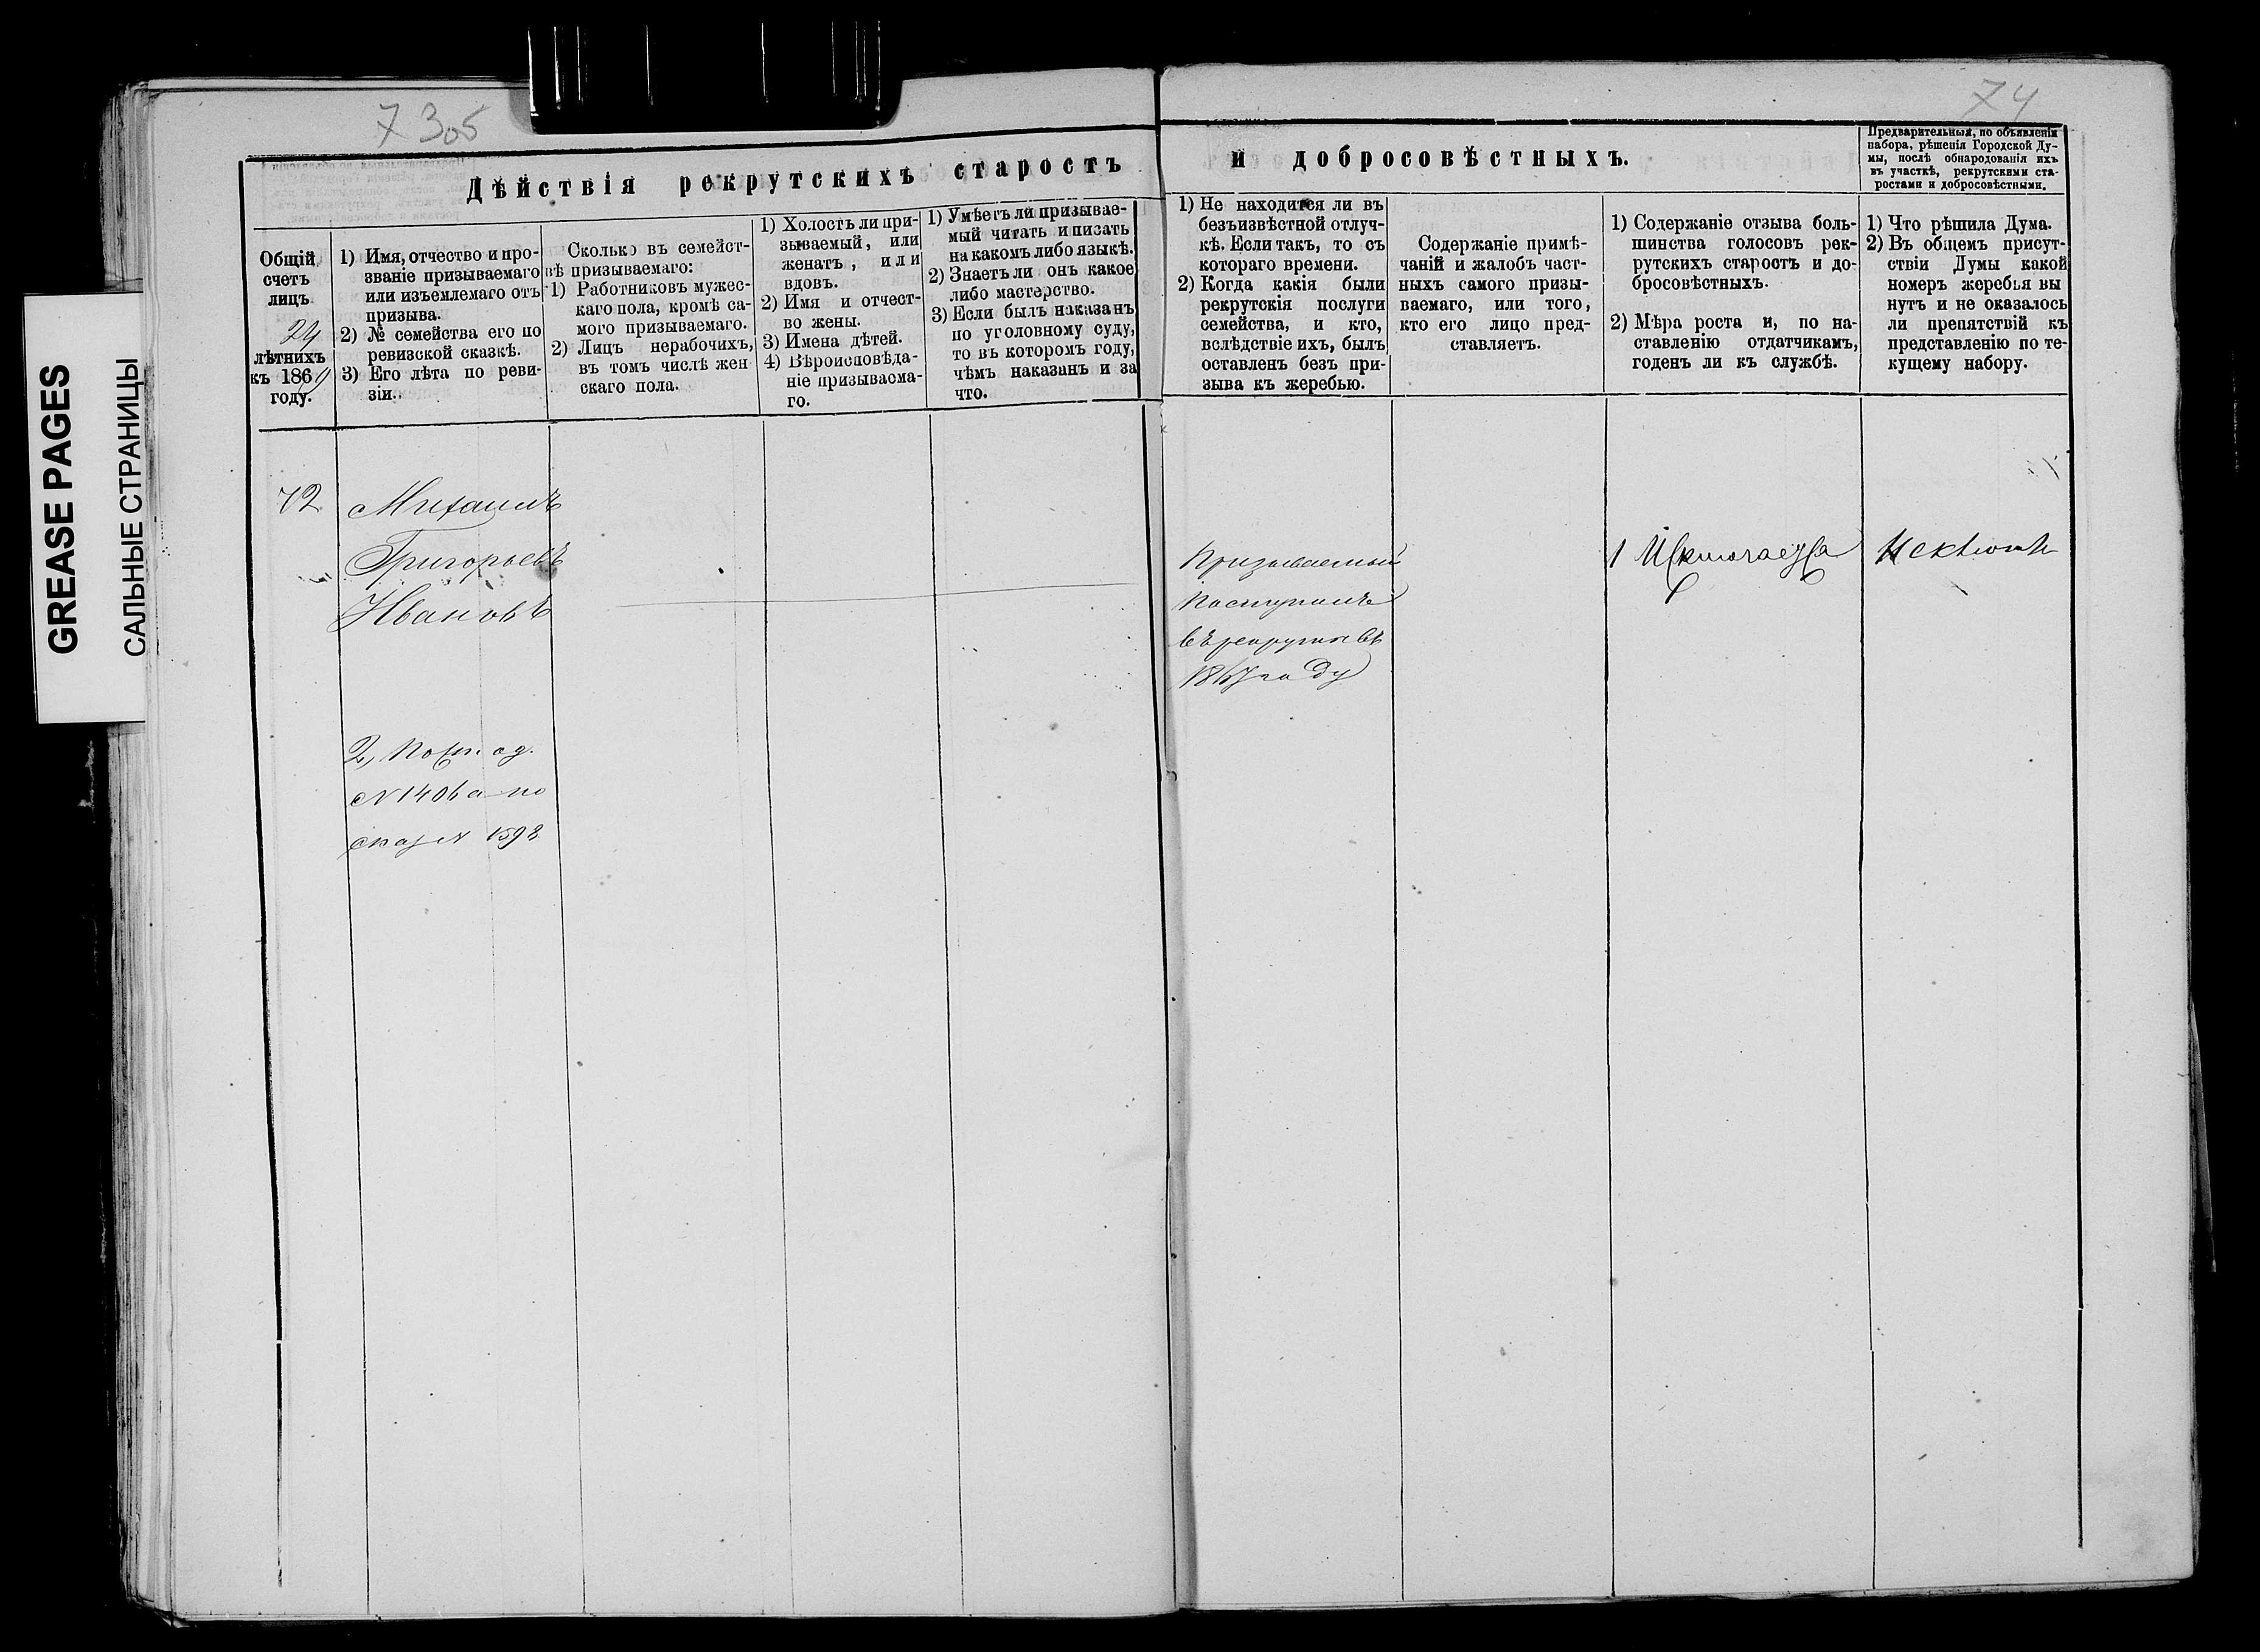 7305
74
GREASE PAGES
САЛЬНЫЕ СТРАНИЦЫ
Дѣйствія рекрутскихъ старостъ
и добросовѣстныхъ.
Предварительныя, по объявленіи
набора, рѣшенія Городской Ду-
мы, послѣ обнародованія ихъ
въ участкѣ, рекрутскими ста-
ростами и добросовѣстными.
Общій
счетъ
лицъ
24
лѣтнихъ
къ 1869
году.
1) Имя, отчество и про-
званіе призываемаго
или изъемлемаго отъ
призыва.
2) № семейства его по
ревизской сказкѣ.
3) Его лѣта по реви-
зіи.
Сколько въ семейст-
вѣ призываемаго:
1) Работниковъ мужес-
каго пола, кромѣ са-
мого призываемаго.
2) Лицъ нерабочихъ,
въ томъ числѣ жен
скаго пола.
1) Холостъ ли при-
зываемый, или
женатъ, или
вдовъ.
2) Имя и отчест-
во жены.
3) Имена дѣтей.
4) Вѣроисповѣда-
ніе призываема-
го.
1) Умѣетъ ли призывае-
мый читать и писать
на какомъ либо языкѣ.
2) Знаетъ ли онъ какое
либо мастерство.
3) Если былъ наказанъ
по уголовному суду,
то въ которомъ году,
чѣмъ наказанъ и за
что.
1) Не находится ли въ
безъизвѣстной отлуч-
кѣ. Если такъ, то съ
котораго времени.
2) Когда какія были
рекрутскія послуги
семейства, и кто,
вслѣдствіе ихъ, былъ
оставленъ безъ при-
зыва къ жеребью.
Содержаніе примѣ-
чаній и жалобъ част-
ныхъ самого призы-
ваемаго, или того,
кто его лицо пред-
ставляетъ.
1) Содержаніе отзыва боль-
шинства голосовъ рек-
рутскихъ старостъ и до-
бросовѣстныхъ.
2) Мѣра роста и, по на-
ставленію отдатчикамъ,
годенъ ли къ службѣ.
1) Что рѣшила Дума.
2) Въ общемъ присут-
ствіи Думы какой
номеръ жеребья вы
нутъ и не оказалось
ли препятствій къ
представленію по те-
кущему набору.
72
Михаилъ
Григорьевъ
Ивановъ
2, По
№ 1406 а по
сказ № 1592
Призываемый
поступилъ
въ рекруты въ
1867 году
1 Исключается
Исключить